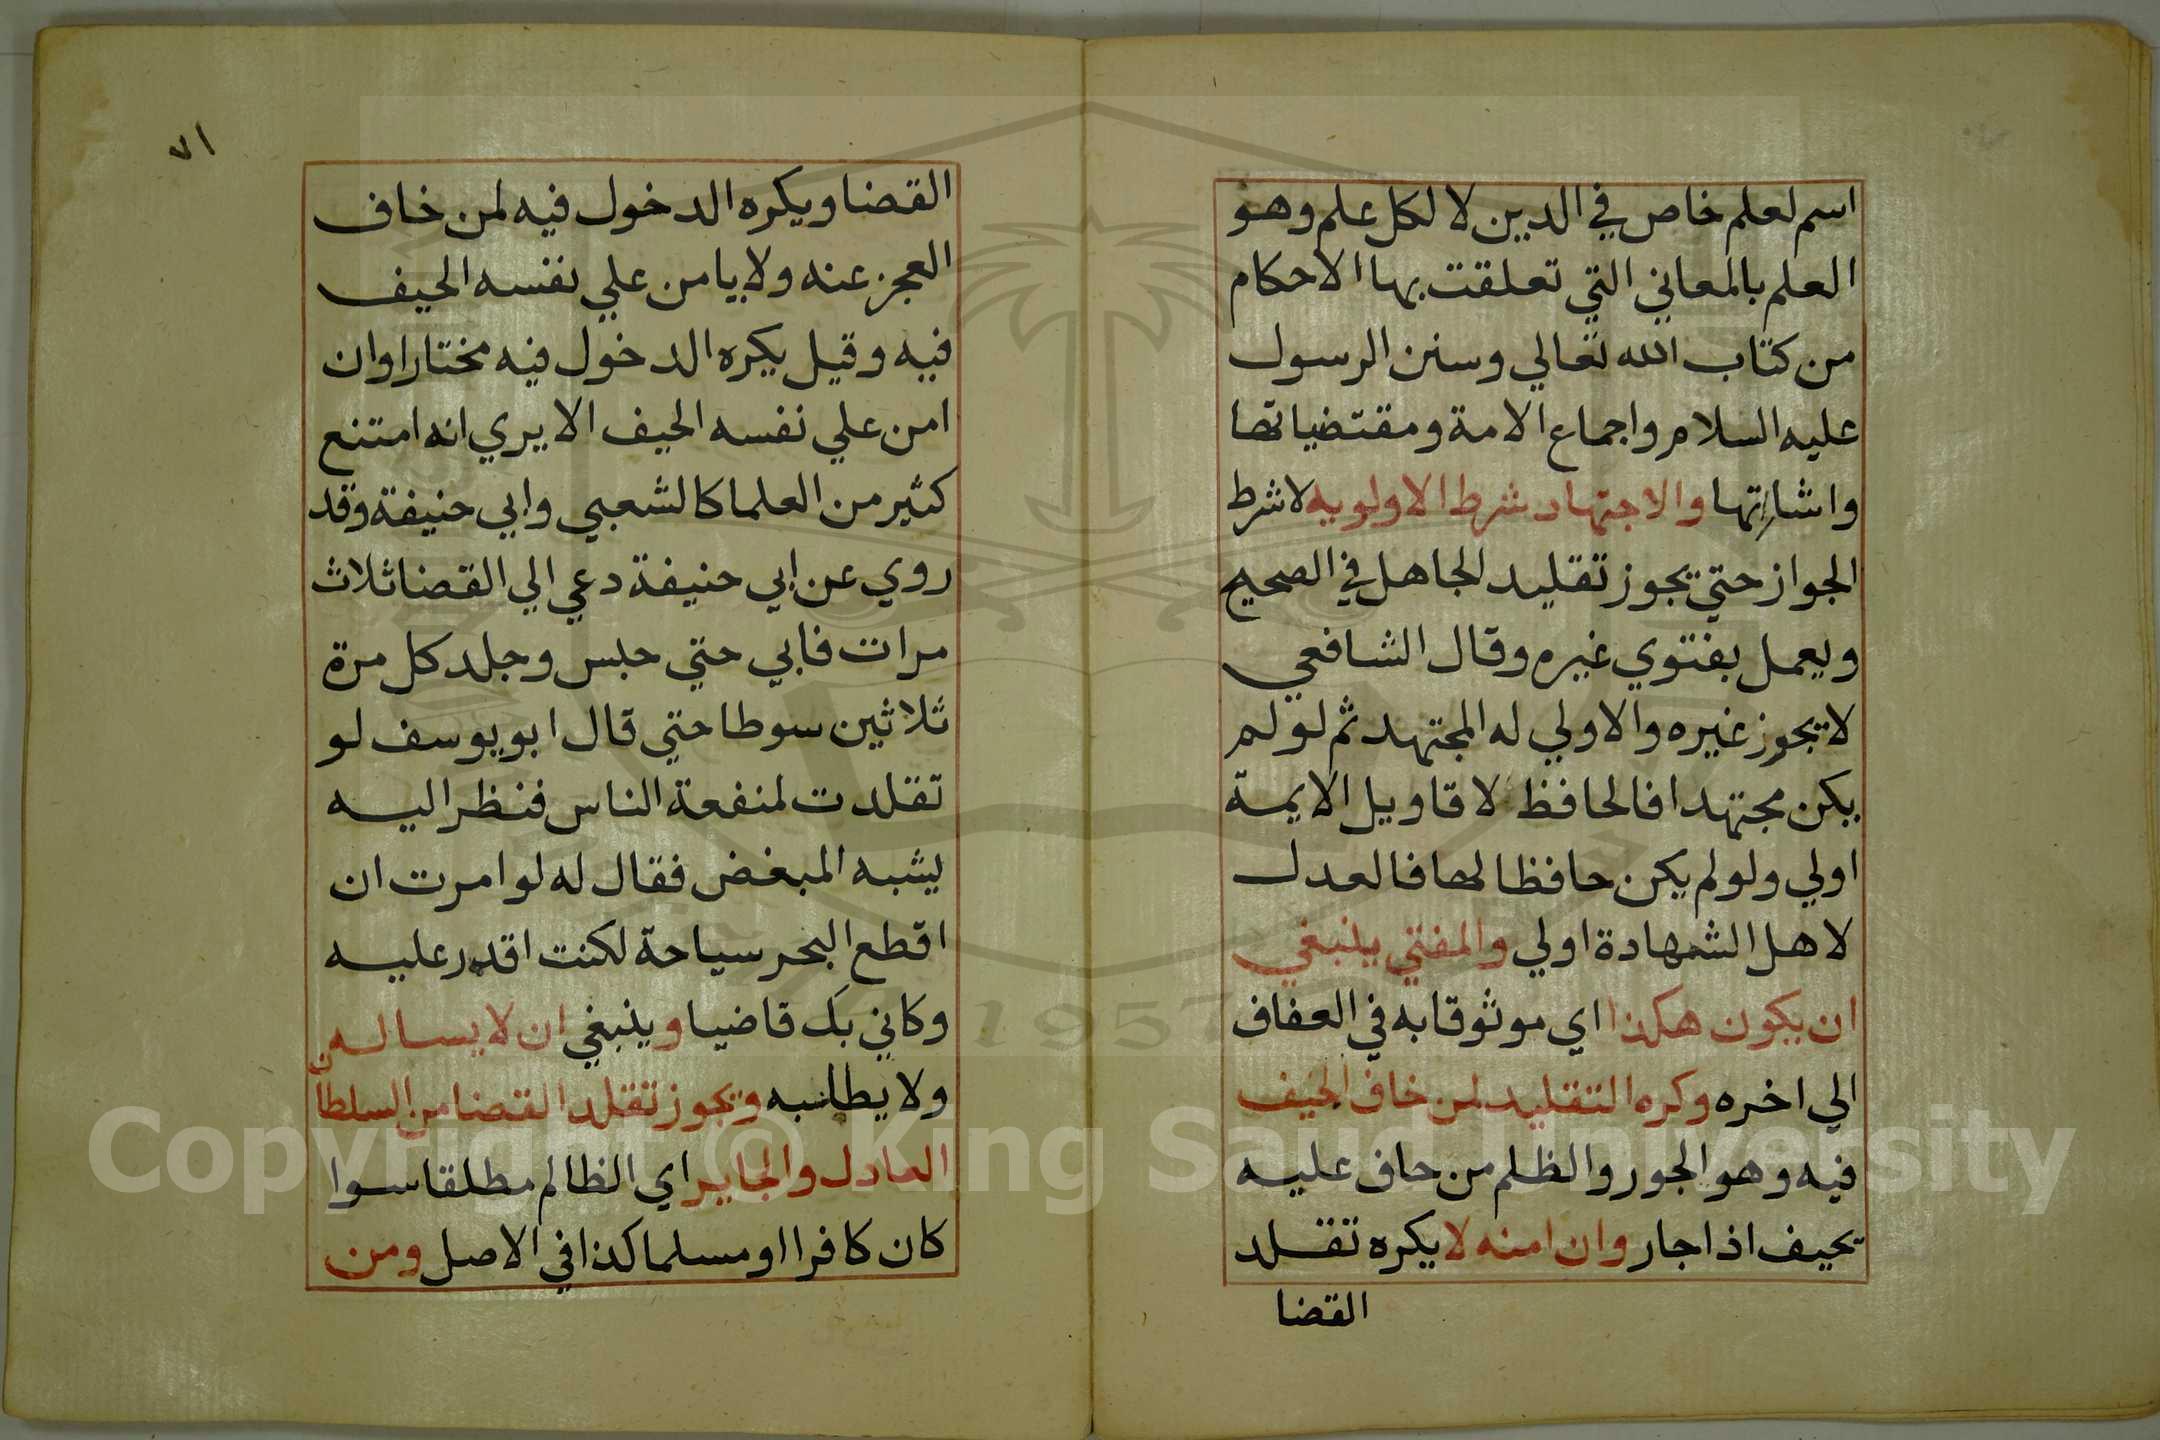 اسم لعلم خاص في الدين لا لكل علم وهو
العلم بالمعاني التي تعلقت بها الاحكام
من كتاب الله تعالي وسنن الرسول
عليه السلام واجماع الامة ومقتضياتها
واشاراتها والاجتهاد شرط الاولويه لا شرط
الجواز حتي يجوز تقليد الجاهل في الصحيح
ويعمل بفتوي غيره وقال الشافعي
لا يجوز غيره والاولي له المجتهد ثم لو لم
يكن مجتهدا فالحافظ لاقاويل الايمة
اولي ولو لم يكن حافظا لها فالعدل
لاهل الشهادة اولي والمفتي ينبغي
ان يكون هكذا اي موثوقا به في العفاف
الي اخره وكره التقليد لمن خاف الحيف
فيه وهو الجور والظلم من حاف عليه
يحيف اذا جار وان امنه لا يكره تقلد
القضا
٧١
القضا ويكره الدخول فيه لمن خاف
العجز عنه ولا يامن علي نفسه الحيف
فيه وقيل يكره الدخول فيه مختارا وان
امن علي نفسه الحيف الا يري انه امتنع
كثير من العلما كالشعبي وابي حنيفة وقد
روي عن ابي حنيفة دعي الي القضا ثلاث
مرات فابي حتي حبس وجلد كل مرة
ثلاثين سوطا حتي قال ابو يوسف لو
تقلدت لمنفعة الناس فنظر اليه
يشبه المبغض فقال له لو امرت ان
اقطع البحر سياحة لكنت اقدر عليه
وكاني بك قاضيا وينبغي ان لا يساله من
ولا يطلبه ويجوز تقلد القضا من السلطان
العادل والجاير اي الظالم مطلقا سوا
كان كافرا او مسلما كذا في الاصل ومن
Copyright © King Saud University
1957